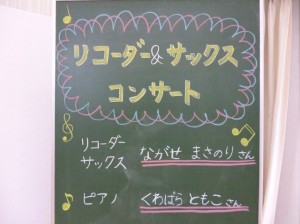 リコーダー&サックス
コンサート
リコーダー
サックス
ながせ まさのりさん
ピアノ くわばら ともこさん